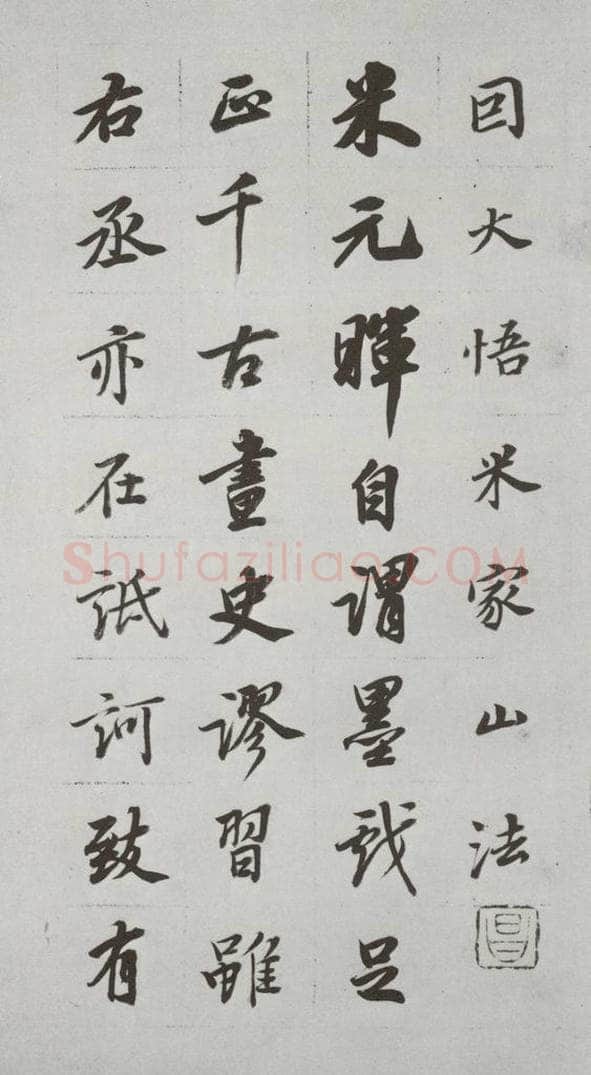 囙大悟米家山法
昌
米元暉自謂墨戲足
正千古畫史謬習雖
右丞亦在詆訶致有
Shufaziliao.COM